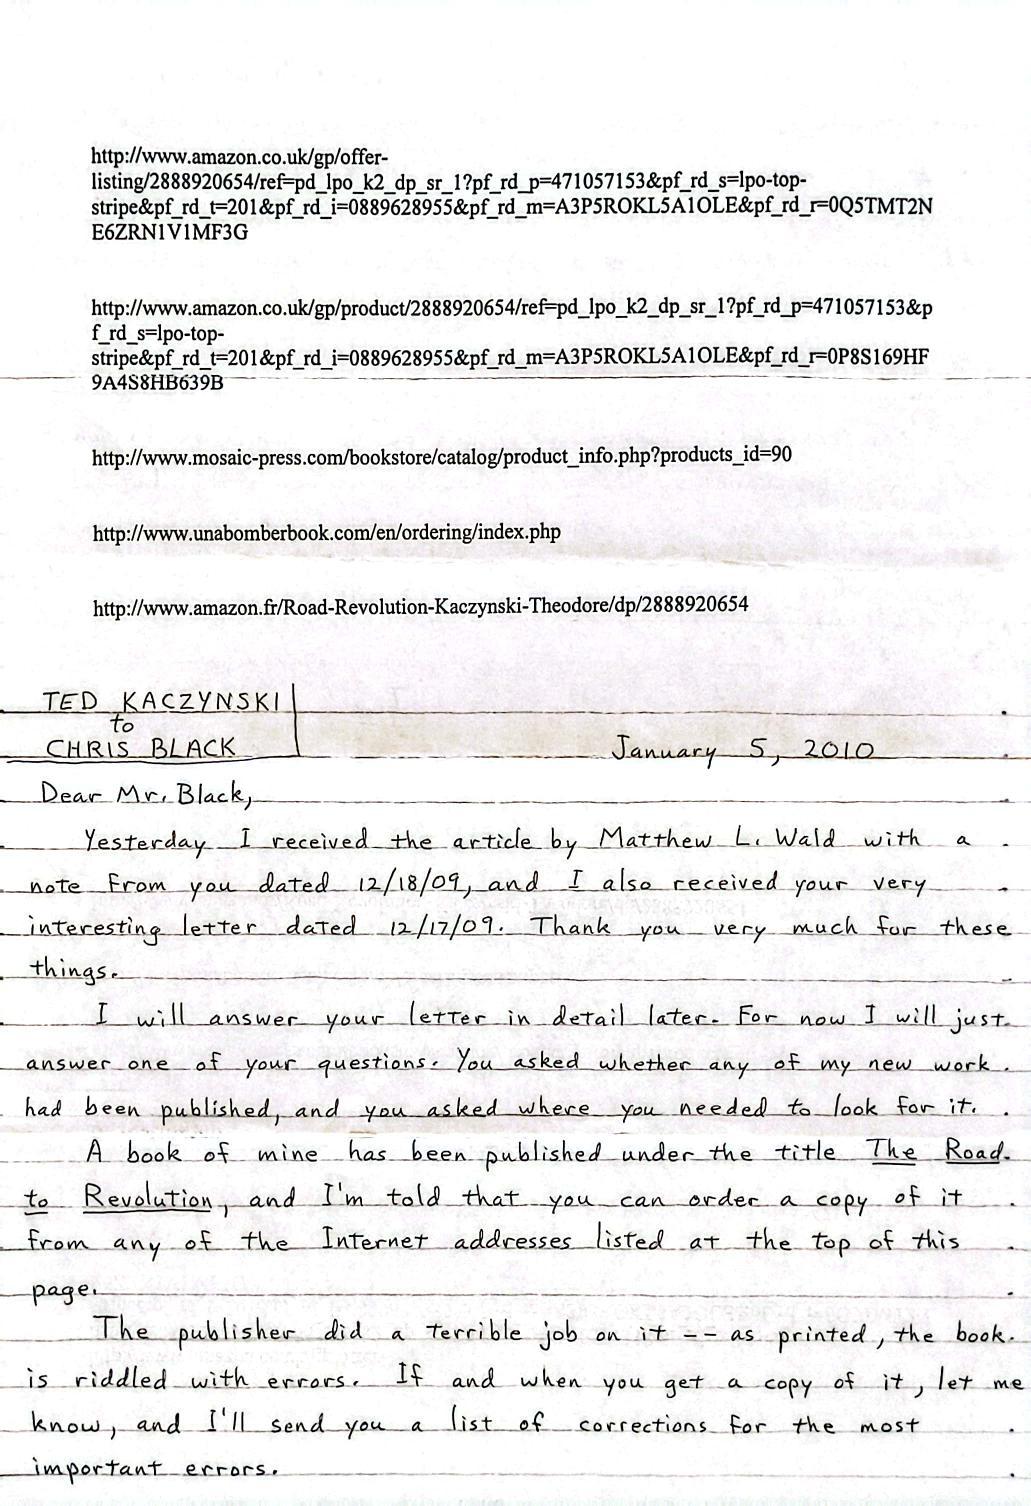 http://www.amazon.co.uk/gp/offer-
listing/2888920654/ref=pd_lpo_k2_dp_sr_1?pf_rd_p=471057153&pf_rd_s=lpo-top-
stripe&pf_rd_t=201&pf_rd_i=0889628955&pf_rd_m=A3P5ROKL5A1OLE&pf_rd_r=0Q5TMT2N
E6ZRN1V1MF3G
http://www.amazon.co.uk/gp/product/2888920654/ref=pd_lpo_k2_dp_sr_1?pf_rd_p=471057153&p
f_rd_s=lpo-top-
stripe&pf_rd_t=201&pf_rd_i=0889628955&pf_rd_m=A3P5ROKL5A1OLE&pf_rd_r=0P8S169HF
9A4S8HB639B
http://www.mosaic-press.com/bookstore/catalog/product_info.php?products_id=90
http://www.unabomberbook.com/en/ordering/index.php
http://www.amazon.fr/Road-Revolution-Kaczynski-Theodore/dp/2888920654
TED KACZYNSKI
to
CHRIS BLACK January 5, 2010
Dear Mr. Black,
Yesterday I received the article by Matthew L. Wald with a
note from you dated 12/18/09, and I also received your very
interesting letter dated 12/17/09. Thank you very much for these
things.
I will answer your letter in detail later. For now I will just
answer one of your questions. You asked whether any of my new work
had been published, and you asked where you needed to look for it.
A book of mine has been published under the title The Road
to Revolution, and I'm told that you can order a copy of it
from any of the Internet addresses listed at the top of this
page.
The publisher did a terrible job on it -- as printed, the book
is riddled with errors. If and when you get a copy of it, let me
know, and I'll send you a list of corrections for the most
important errors.